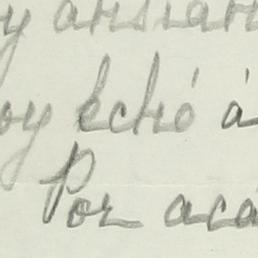 y ansian
oy echó á
Por acá